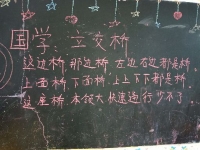 国学：立交桥
这边桥，那边桥，左边右边都是桥，
上面桥，下面桥，上上下下都是桥，
这座桥，本领大，快速通行少不了。